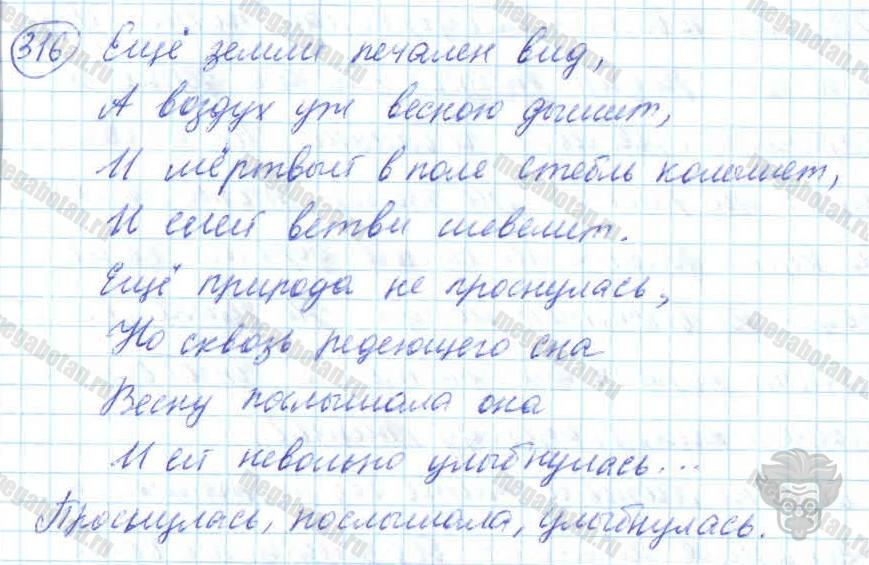 316 Ещё земли печален вид,
А воздух уж весною дышит,
И мёртвый в поле стебль колышет,
И елей ветви шевелит.
Ещё природа не проснулась,
Но сквозь редеющего сна
Весну послышала она
И ей невольно улыбнулась...
Проснулась, послышала, улыбнулась.
megabotan.ru